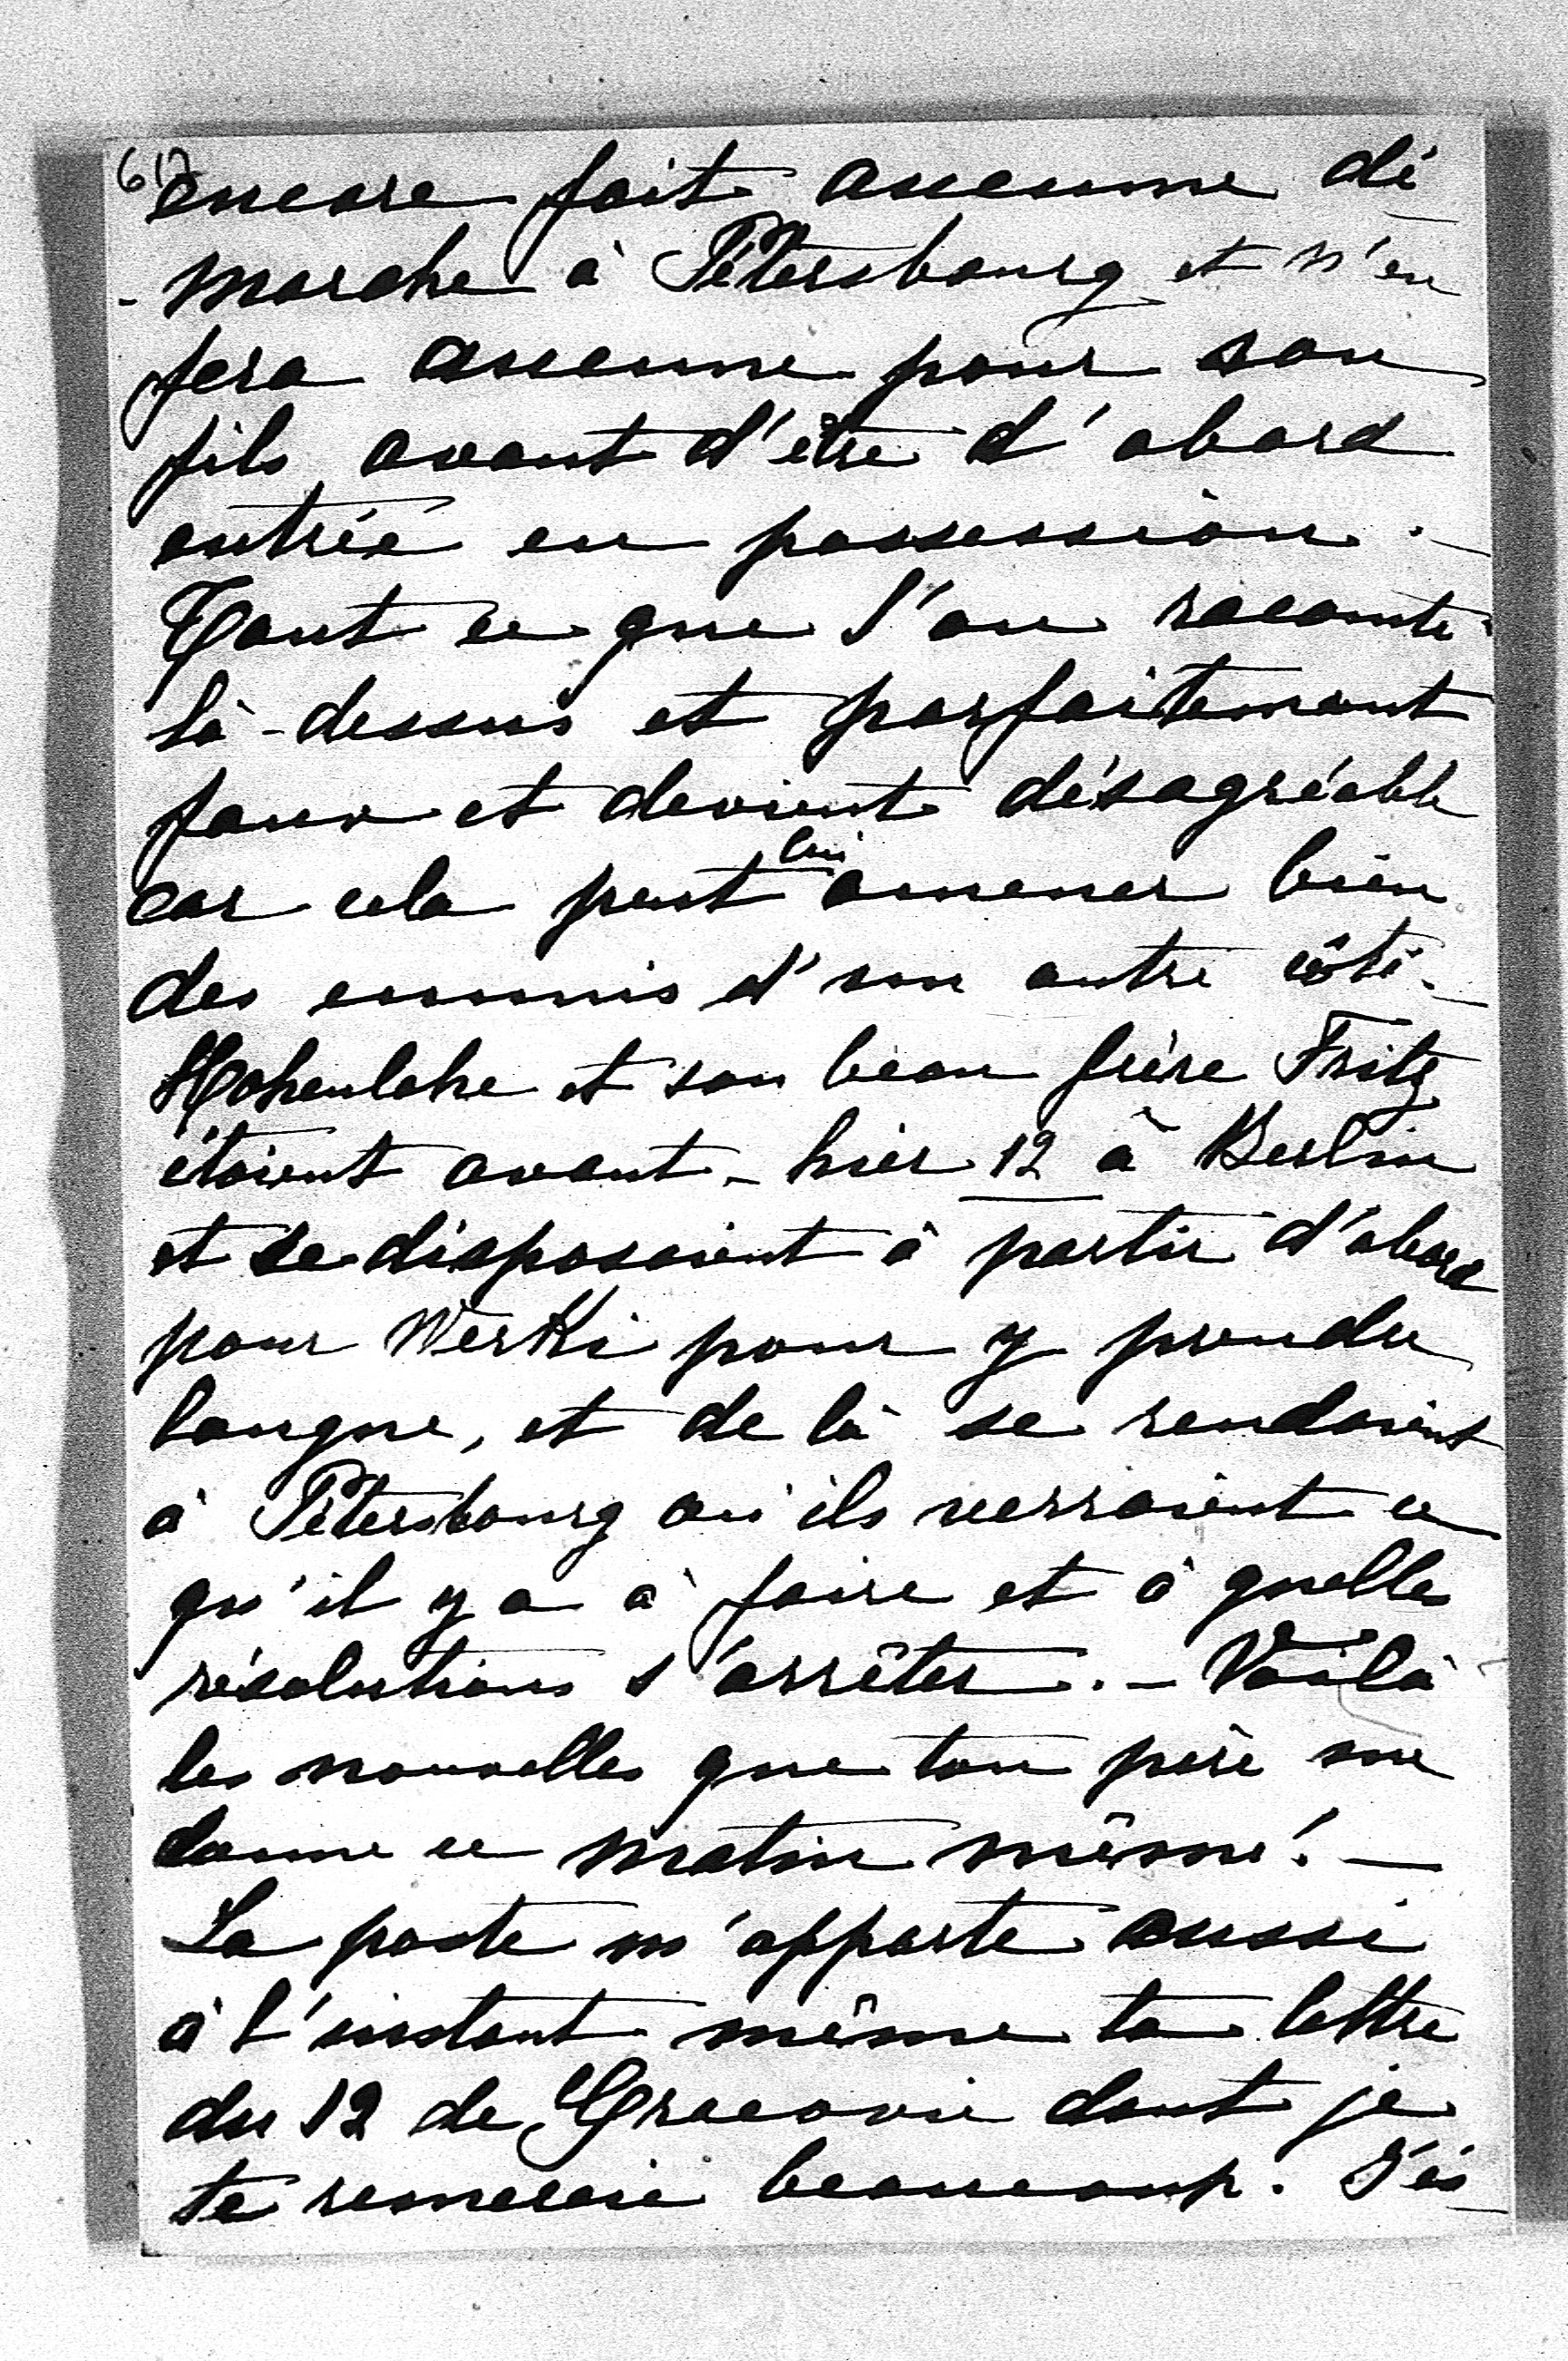 617
encore fait aucune dé
-marche à Pétersbourg et n'en
fera aucune pour son
fils avant d'être d'abord
entrée en possession. —
Tout ce que l'on raconte
là-dessus et parfaitement
faux et devient désagréable
lui
car cela peut amener bien
des ennuis d'un autre côté. —
Hohenlohe et son beau frère Fritz
étaient avant-hier 12 à Berlin
et se disposaient à partir d'abord
pour Werki pour y prendre
langue, et de là se rendaient
à Pétersbourg où ils verraient ce
qu'il y a à faire et à quelles
résolutions s'arrêter. — Voilà
les nouvelles que ton père me
donne ce matin même! —
La poste m'apporte aussi
à l'instant même ta lettre
du 12 de Cracovie dont je
te remercie beaucoup.